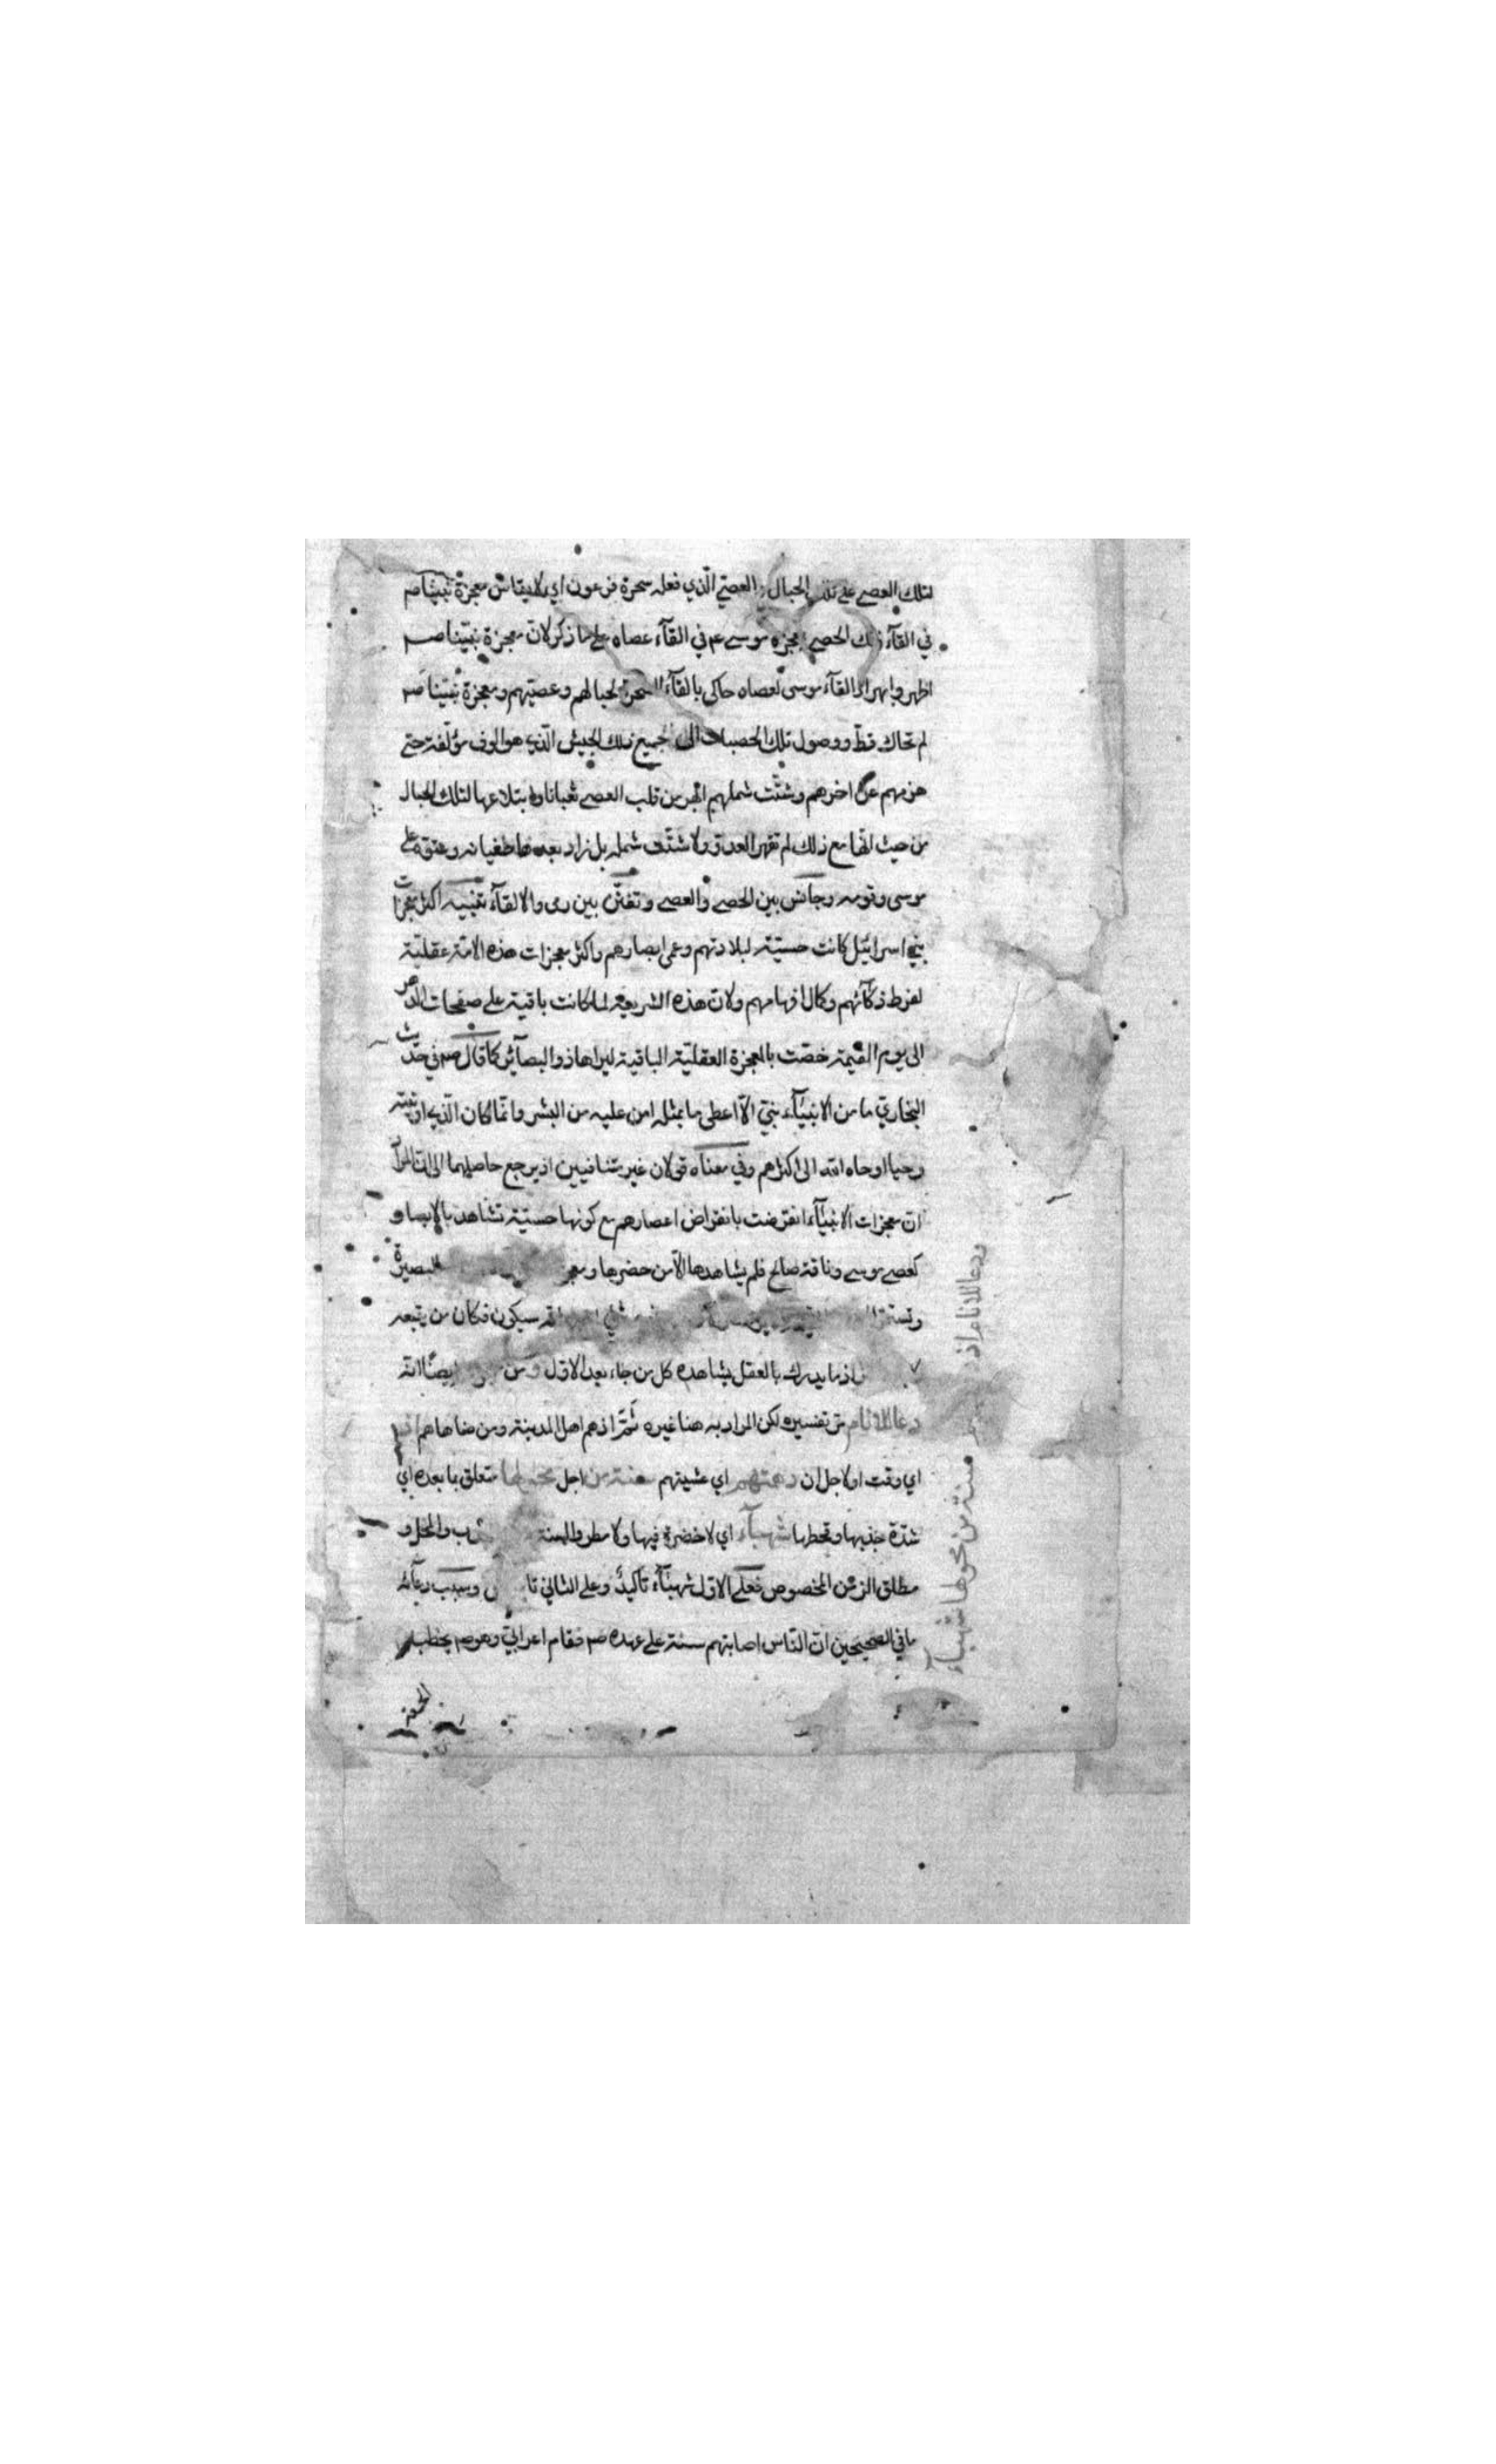 لتلك العصي على تلك الحبال و العصي الّذي فعله سحرة فرعون اي لا يقاس معجزة نبينا صم
في القآء ذلك الحصي بمعجزة موسى عم في القآء عصاه على ما ذكر لانّ معجزة نبيّنا صم
اظهر وابهر اذ القآء موسى لعصاه حاكى بالقآء السحرة لحبالهم وعصيّهم ومعجزة نبيّنا صم
لم تحاك قطّ ووصول تلك الحصبات الى جميع ذلك الجيش الّذي هو الوف مؤلّفة حتى
هزمهم عن اخرهم وشتّت شملهم ابهر من قلب العصي ثعبانا وابتلاعها لتلك الحبال
من حيث انّها مع ذلك لم تقهر العدوّ ولا شتّت شمله بل زاد بعدها طغيانه وعتوّه على
موسى وقومه وجانس بين الحصي والعصي وتفنّن بين رمى والالقآء تنبيه اكثر معجزات
بني اسرائيل كانت حسيّة لبلادتهم وعمى ابصارهم واكثر معجزات هذه الامّة عقليّة
لفرط ذكآئهم وكمال افهامهم ولانّ هذه الشريعة لما كانت باقية على صفحات الدهر
الى يوم القيمة خصّت بالمعجزة العقليّة الباقية ليراها ذو البصآئر كما قال صم في حديث
البخاريّ ما من الانبيآء نبيّ الّا اعطى ما بمثله امن عليه من البشر وانّما كان الّذي اوتيته
وحيا اوحاه الله الى اكثرهم وفي معناه قولان غير متنافيين اذ يرجع حاصلهما الى انّ المراد
انّ معجزات الانبيآء انقرضت بانقراض اعصارهم مع كونها حسيّة تشاهد بالابصار
كعصى موسى وناقة صالح فلم يشاهدها الّا من حضرها البصيرة
سيكون فكان من يتبعه
اذ ما يدرك بالعقل يشاهده كل من جاء بعد الاول ايضا انّه
دعا للانام مرّ تفسيره لكن المراد به هنا غيره ثَمّ اذ هم اهل المدينة ومن ضاهاهم اذ
اي وقت او لاجل ان دهمتهم اي غشيتهم سنة من اجل محولها متعلق بما بعده اي
شدّة جذبها وقحطها شهبآء اي لا خضرة فيها ولا مطر والسنة والمحل و
مطلق الزمن المخصوص فعلى الاوّل شهبآء تاكيد وعلى الثاني وسبب دعآئه
ما في الصحيحين انّ النّاس اصابتهم سنة على عهده صم فقام اعرابيّ وهو صم يخطب
الجمعة
ودعا للانام اذ
سنة من محولها شهبآء